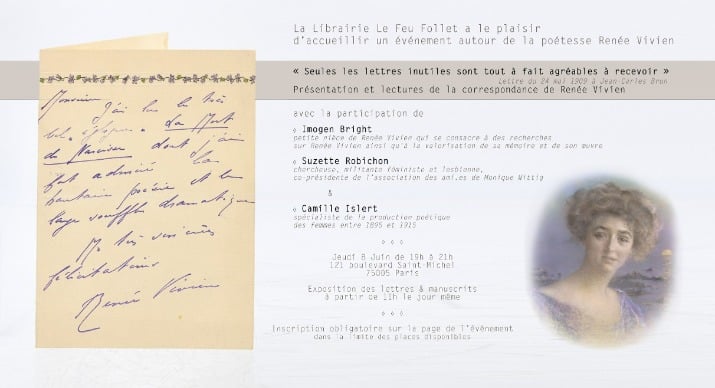 Monsieur
j'ai lu le très
bel "éloge". La Mort
de Narcisse dont j'ai
fort admiré la
hautaine poésie et le
large souffle dramatique
Mes très sincères
félicitations
Renée Vivien
La Librairie Le Feu Follet a le plaisir
d'accueillir un événement autour de la poétesse Renée Vivien
« Seules les lettres inutiles sont tout à fait agréables à recevoir »
Lettre du 24 mai 1909 à Jean-Charles Brun
Présentation et lectures de la correspondance de Renée Vivien
avec la participation de
◊ Imogen Bright
petite nièce de Renée Vivien qui se consacre à des recherches
sur Renée Vivien ainsi qu'à la valorisation de sa mémoire et de son œuvre
◊ Suzette Robichon
chercheuse, militante féministe et lesbienne,
co-présidente de l'association des ami.es de Monique Wittig
&
◊ Camille Islert
spécialiste de la production poétique
des femmes entre 1895 et 1915
◊ ◊ ◊
Jeudi 8 Juin de 19h à 21h
121 boulevard Saint-Michel
75005 Paris
Exposition des lettres & manuscrits
à partir de 11h le jour même
◊ ◊ ◊
Inscription obligatoire sur la page de l'événement
dans la limite des places disponibles